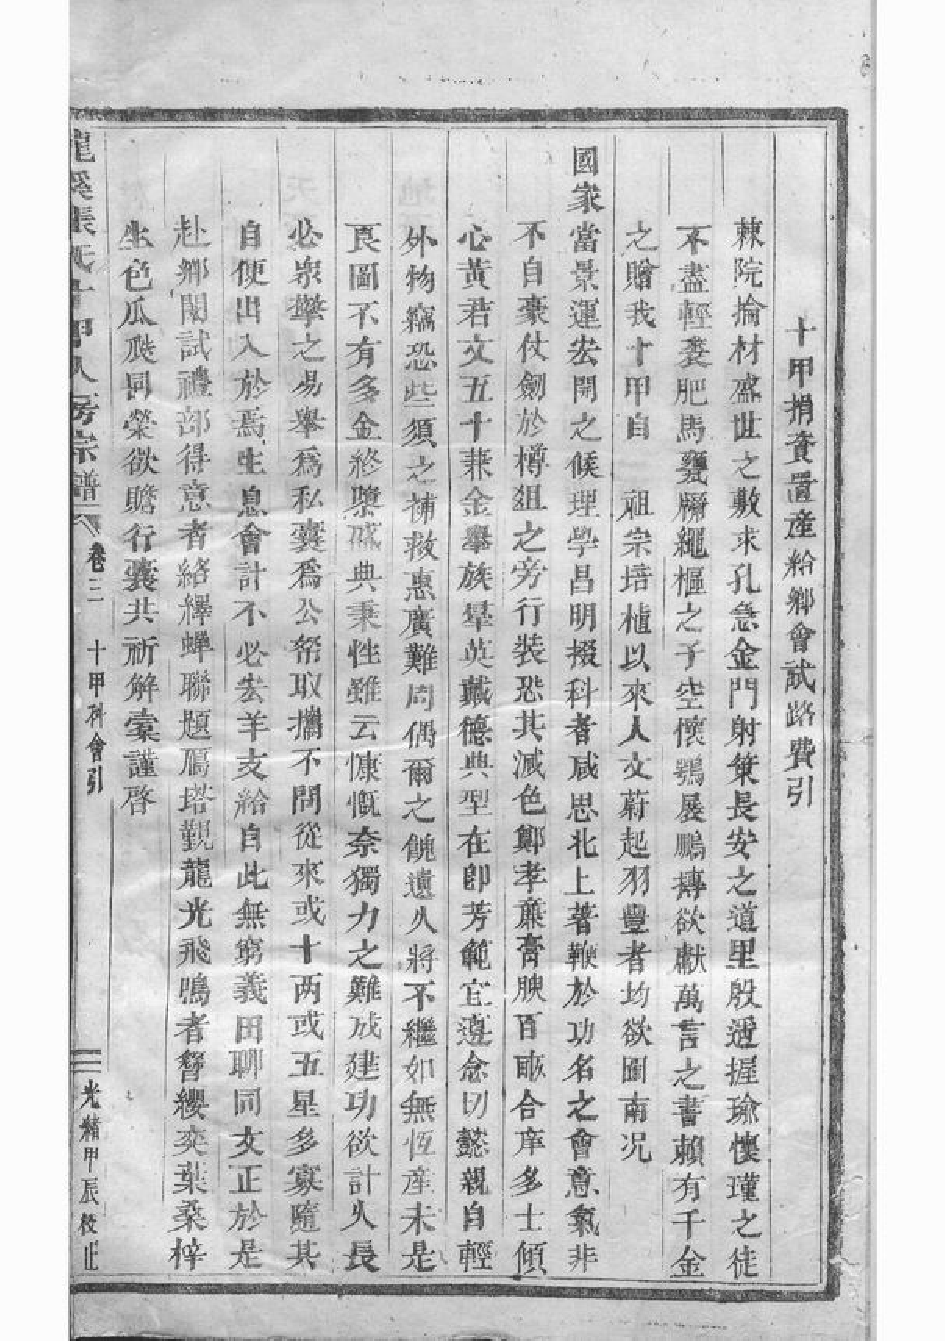 十甲捐資置產給鄉會試路費引
棘院掄材盛世之敷求孔急金門射策長安之道里殷遥握瑜懷瑾之徒
不盡輕裘肥馬甕牖繩樞之子空懷鶚展鵬摶欲獻萬言之書賴有千金
之贈我十甲自　祖宗培植以來人文蔚起羽豐者均欲圖南况
國家當景運宏開之候理學昌明掇科者咸思北上著鞭於功名之會意氣非
不自豪仗劍於樽俎之旁行裝恐其减色鄭孝廉膏腴百畝合庠多士傾
心黃君文五十兼金舉族羣英戴德典型在卽芳範宜遵念切懿親自輕
外物竊恐些須之補救惠廣難周偶爾之餽遺久將不繼如無恆產未是
良圖不有多金終隳盛典秉性雖云慷慨奈獨力之難成建功欲計久長
必衆擎之易舉爲私囊爲公帑取攜不問從來或十两或五星多寡隨其
自便出入於焉生息會計不必宏羊支給自此無窮義田聊同文正於是
赴鄉闈試禮部得意者絡繹蟬聯題鴈塔觀龍光飛鳴者簪纓奕葉桑梓
生色瓜瓞同榮欲贍行囊共祈解橐謹啓
龍溪張氏十甲八房宗譜　卷三　十甲科會引　光緒甲辰校正